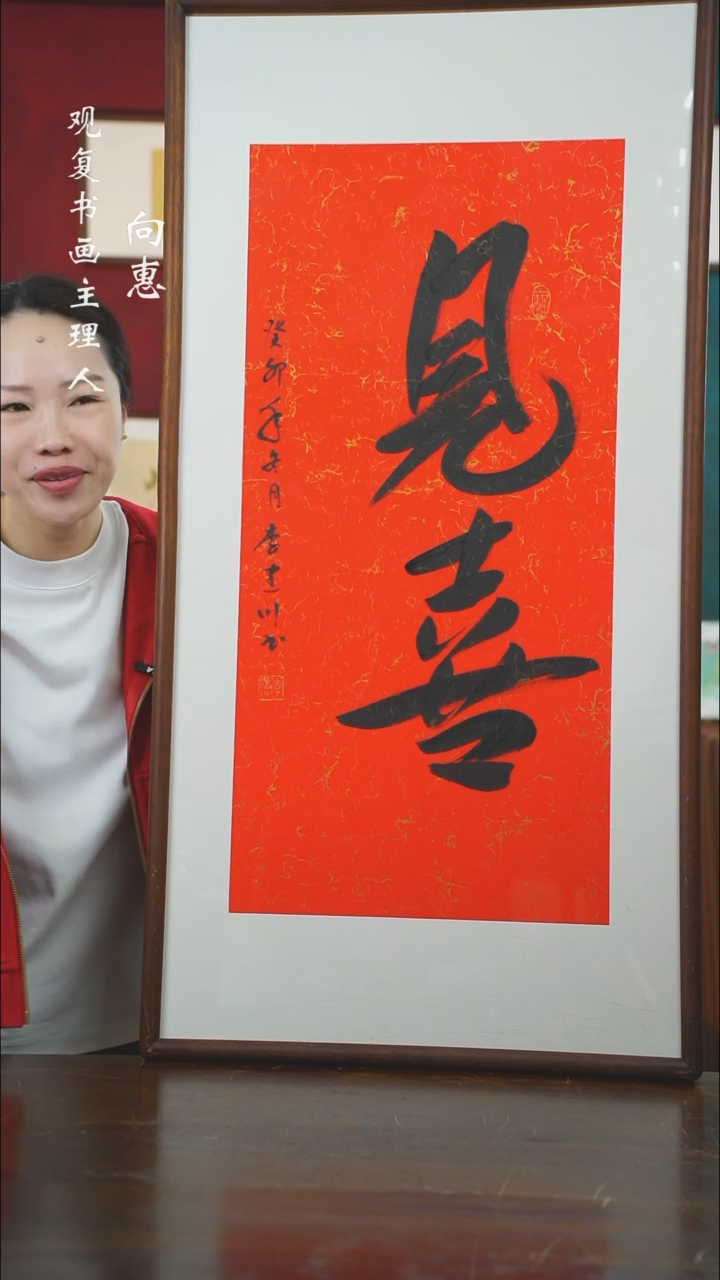 观复书画主理人
向惠
見喜
癸卯年冬月李建川书